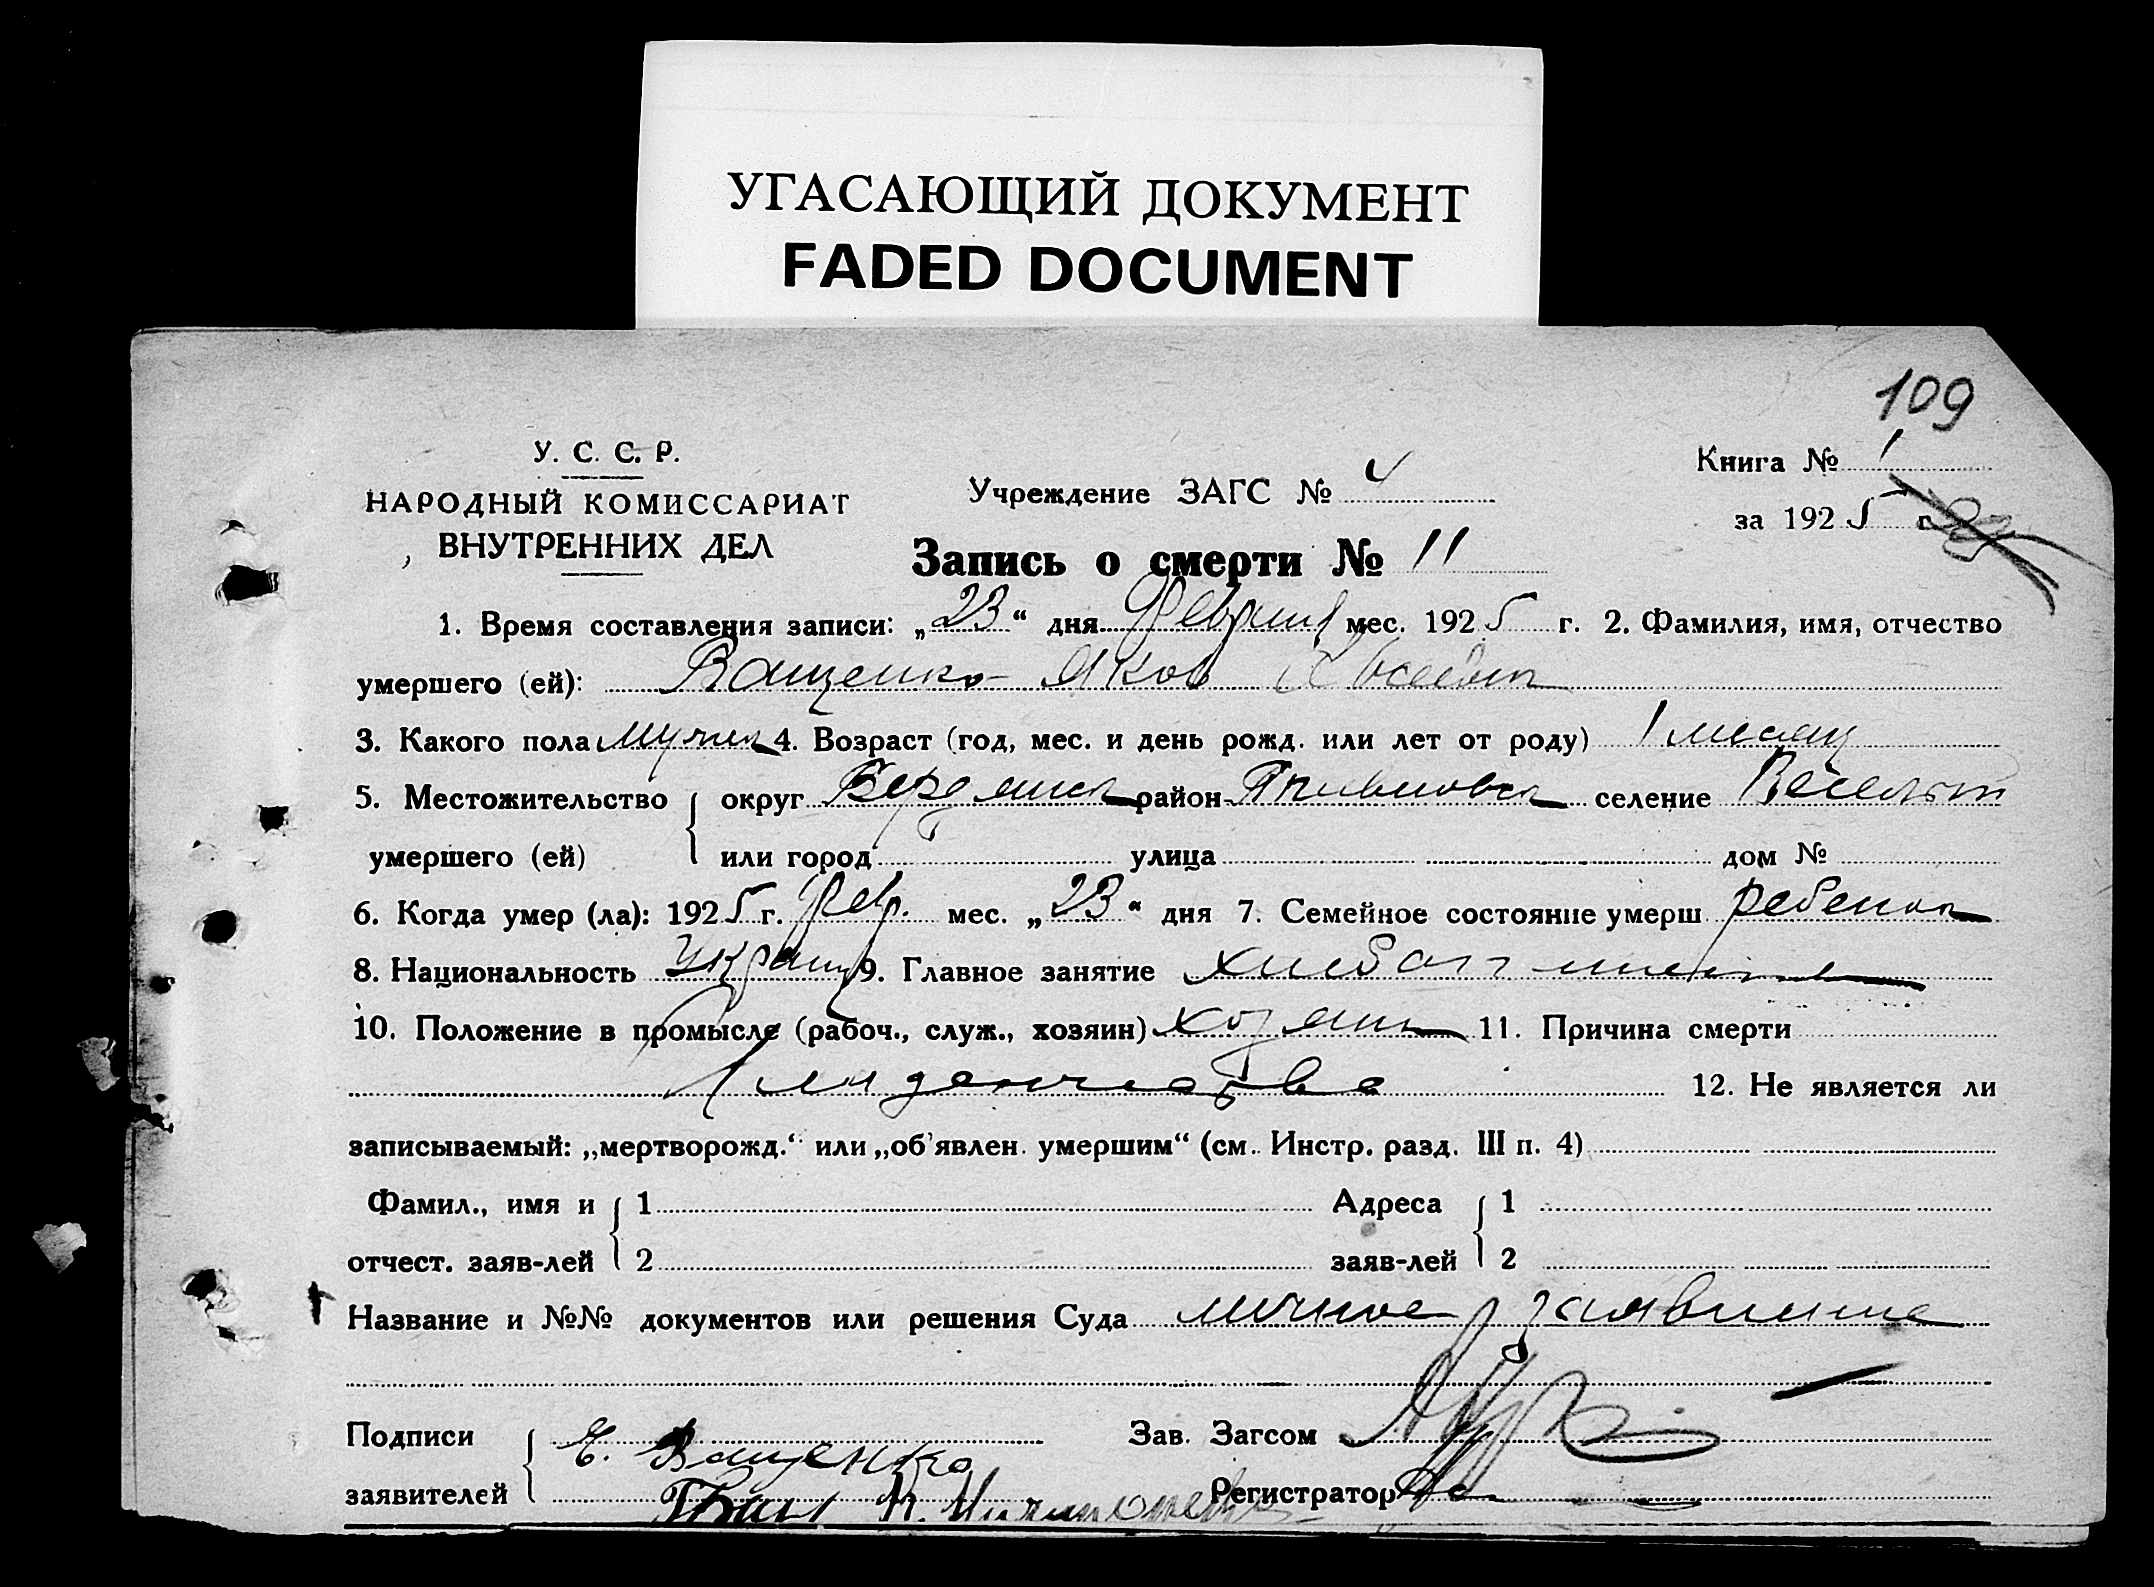 УГАСАЮЩИЙ ДОКУМЕНТ
FADED DOCUMENT
109
У. С. С. Р.
НАРОДНЫЙ КОМИССАРИАТ
ВНУТРЕННИХ ДЕЛ
Учреждение ЗАГС № 4
Книга № 1
за 1925 г.
Запись о смерти № 11
1. Время составления записи: „23“ дня Февраля мес. 1925 г. 2. Фамилия, имя, отчество
умершего (ей): Ващенко Яков
3. Какого пола мужск 4. Возраст (год, мес. и день рожд. или лет от роду) 1 месяц
5. Местожительство округ Бердянск район селение
умершего (ей) или город улица дом №
6. Когда умер (ла): 1925 г. Февр. мес. „23“ дня 7. Семейное состояние умерш ребенок
8. Национальность Украин 9. Главное занятие
10. Положение в промысле (рабоч., служ., хозяин) хозяин 11. Причина смерти
12. Не является ли
записываемый: „мертворожд.“ или „об'явлен. умершим“ (см. Инстр. разд. III п. 4)
Фамил., имя и 1 Адреса 1
отчест. заяв-лей 2 заяв-лей 2
Название и №№ документов или решения Суда личное заявление
Подписи Е. Ващенко Зав. Загсом
заявителей Регистратор